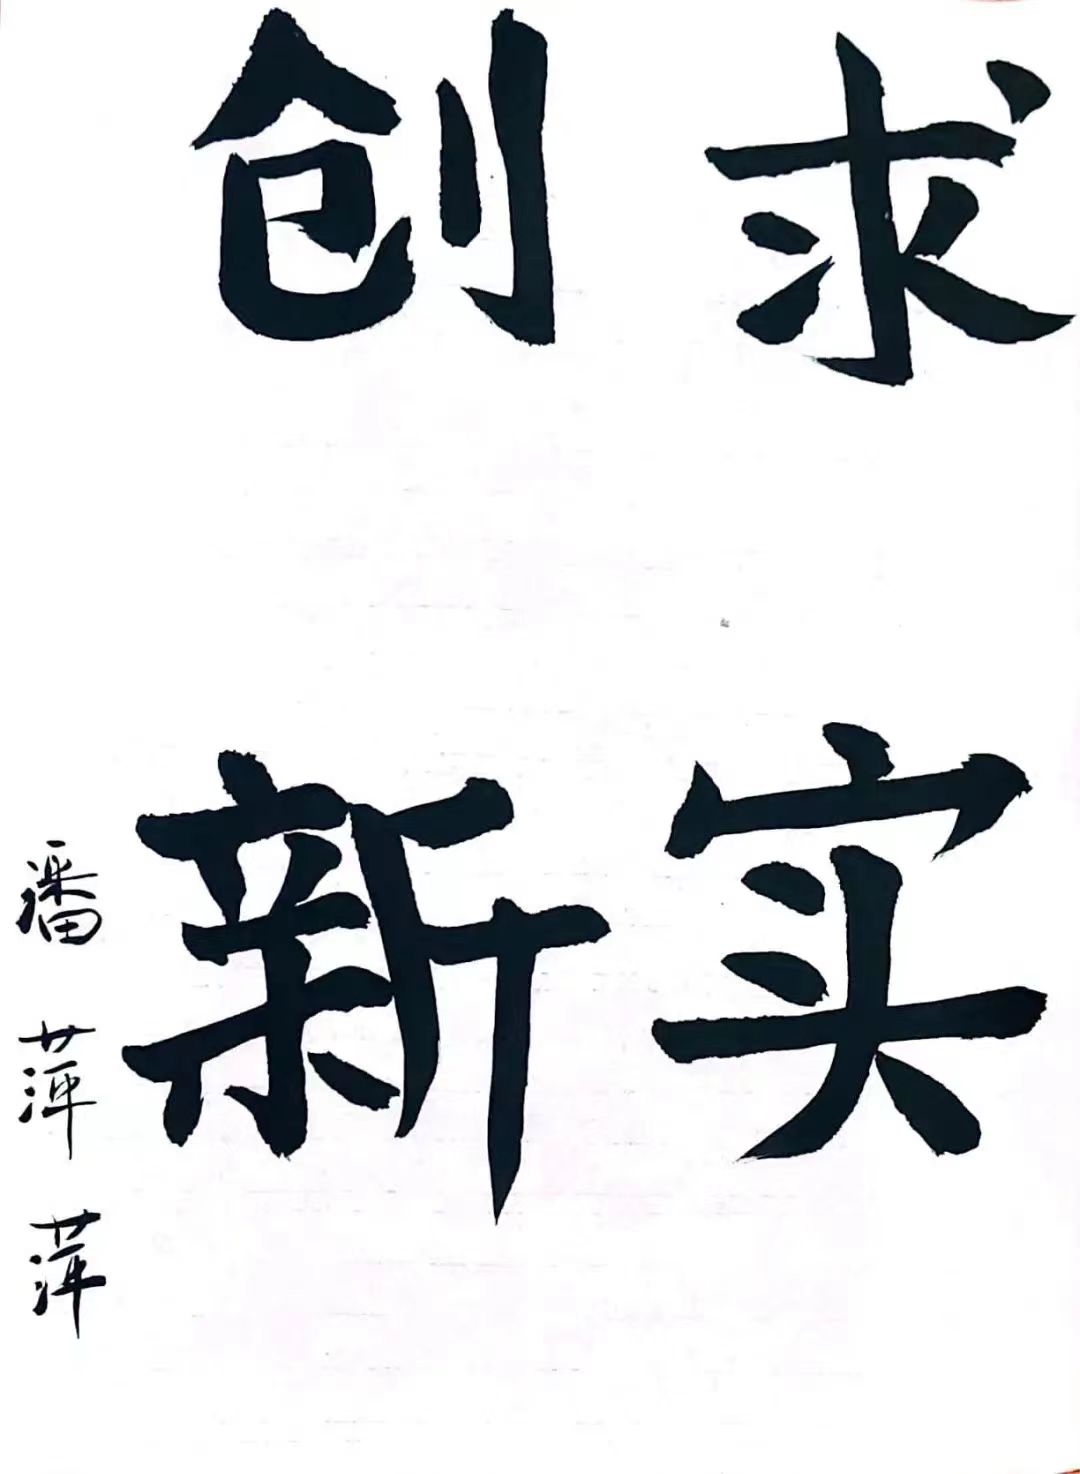 求实
创新
潘萍萍